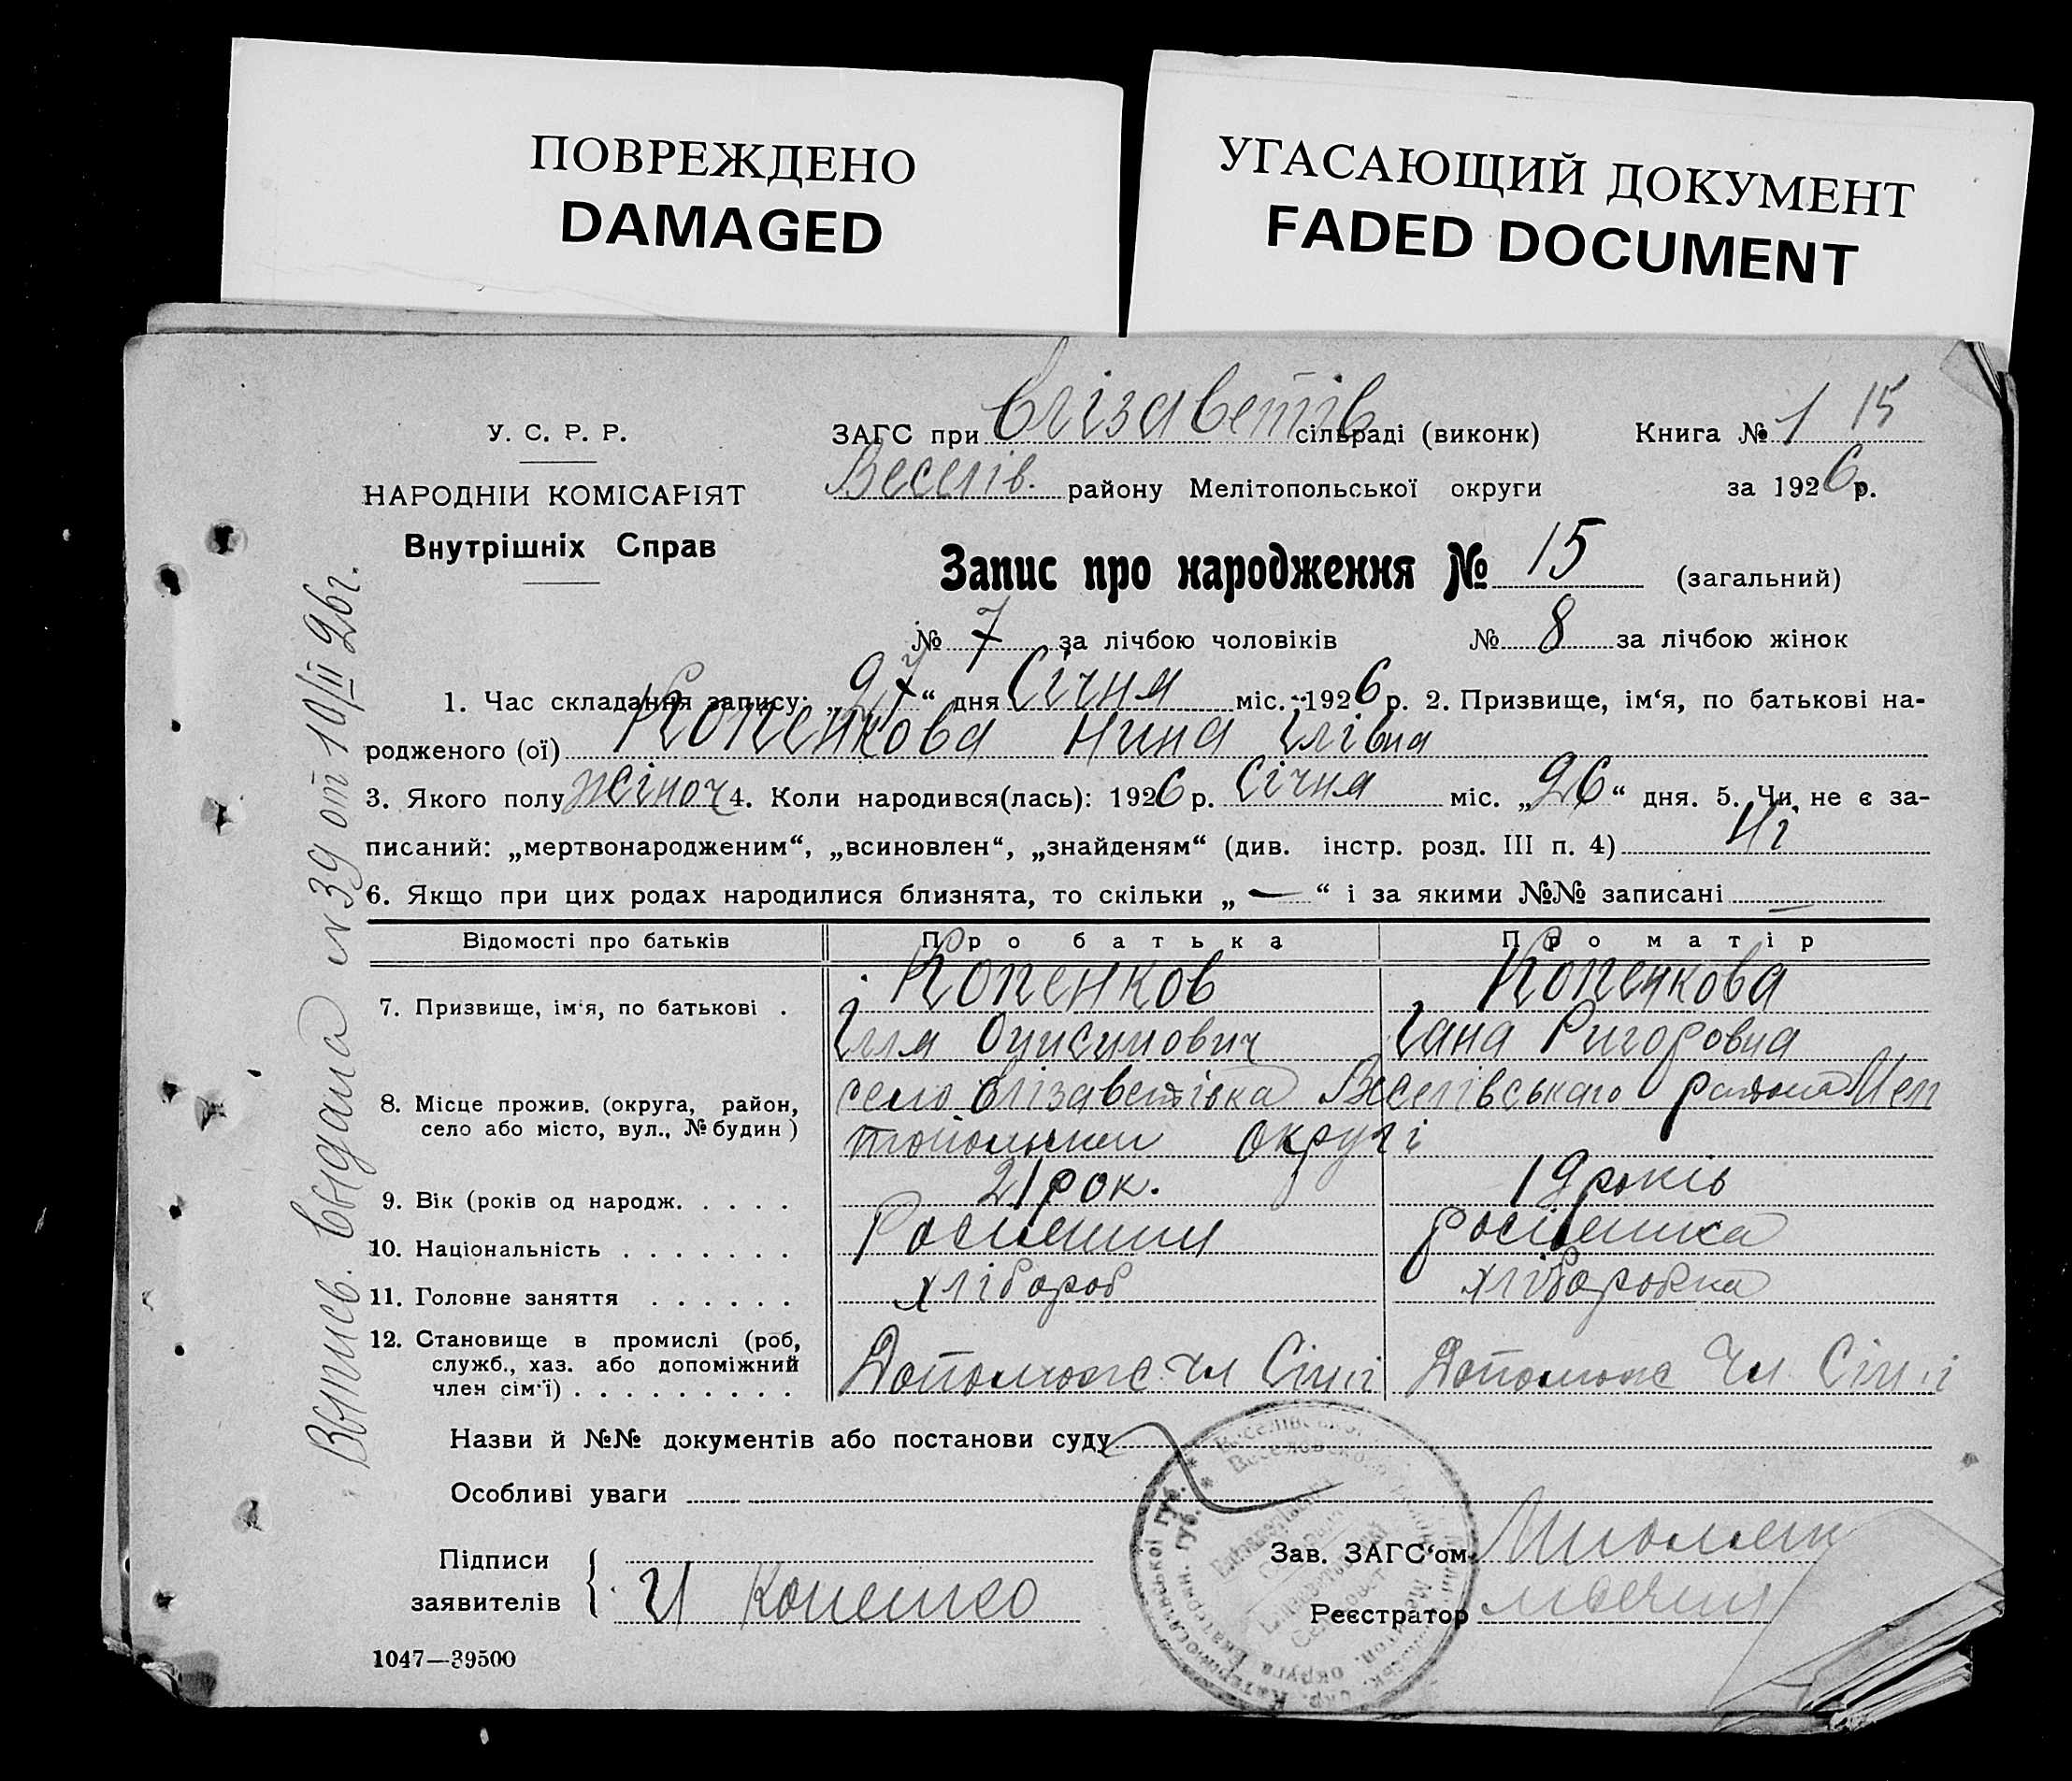 ПОВРЕЖДЕНО
DAMAGED
УГАСАЮЩИЙ ДОКУМЕНТ
FADED DOCUMENT
У. С. Р. Р.
НАРОДНІЙ КОМІСАРІЯТ
Внутрішніх Справ
ЗАГС при Єлізаветів сільраді (виконк)
Книга № 1 15
Веселів. району Мелітопольської округи
за 1926 р.
Запис про народження № 15 (загальний)
№ 7 за лічбою чоловіків № 8 за лічбою жінок
1. Час складання запису: „27“ дня Січня міс. 1926 р. 2. Призвище, ім‘я, по батькові на-
родженого (ої) Копенкова Нина Ілівна
3. Якого полу жіноч 4. Коли народився(лась): 1926 р. Січня міс. „26“ дня. 5. Чи не є за-
писаний: „мертвонародженим“, „всиновлен“, „знайденям“ (див. інстр. розд. III п. 4) Ні
6. Якщо при цих родах народилися близнята, то скільки „—“ і за якими №№ записані —
Відомості про батьків Про батька Про матір
7. Призвище, ім‘я, по батькові . Копенков Копенкова
Ілля Онисимович Гана Ригоровна
8. Місце прожив. (округа, район,
село або місто, вул., № будин)
село Єлізаветівка Веселівськаго района Мелі
топольськ округі
9. Вік (років од народж. . . . . 21 рок. 19 років
10. Національність . . . . . . . Росіянин росіянка
11. Головне заняття . . . . . . хлібороб хлібаробка
12. Становище в промислі (роб,
служб., хаз. або допоміжний
член сім‘ї) . . . . . . . . . Допомож чл Сімі Допомож Чл Сімі
Назви й №№ документів або постанови суду
Особливі уваги
Підписи
заявителів
И Копенко
Зав. ЗАГС‘ом
Реєстратор
1047—39500
Выпись. выдана №39 от 10/II 26г.